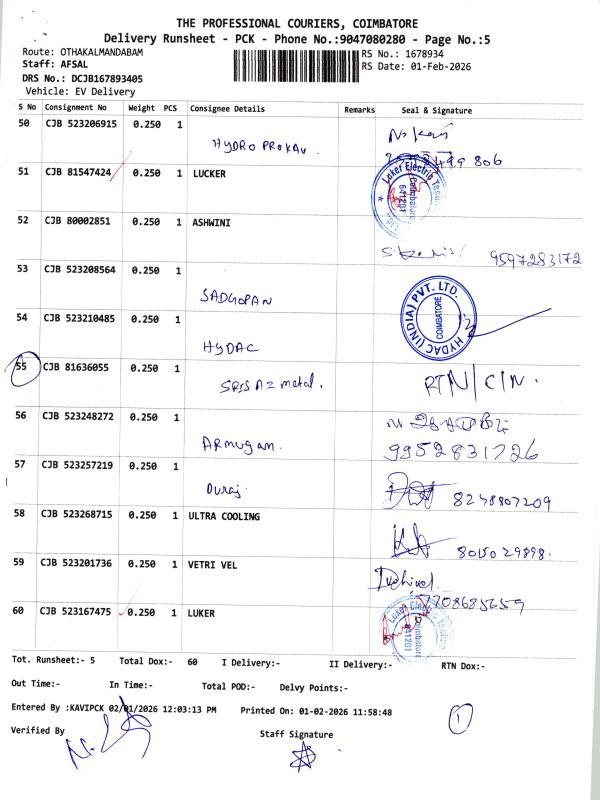 THE PROFESSIONAL COURIERS, COIMBATORE
Delivery Runsheet - PCK - Phone No.:9047080280 - Page No.:5
Route: OTHAKALMANDABAM
RS No.: 1678934
Staff: AFSAL
RS Date: 01-Feb-2026
DRS No.: DCJB167893405
Vehicle: EV Delivery
S No Consignment No Weight PCS Consignee Details Remarks Seal & Signature
50 CJB 523206915 0.250 1
HYDRO PROKAV
51 CJB 81547424 0.250 1 LUCKER
Luker Electric Coimbatore 641201
52 CJB 80002851 0.250 1 ASHWINI
9597283172
53 CJB 523208564 0.250 1
SADGOPAN
HYDAC (INDIA) PVT. LTD. COIMBATORE
54 CJB 523210485 0.250 1
HYDAC
55 CJB 81636055 0.250 1
metal. RTN/CIN.
56 CJB 523248272 0.250 1
ARmugam. 9952831726
57 CJB 523257219 0.250 1
Duraj 8248807209
58 CJB 523268715 0.250 1 ULTRA COOLING
8015029898.
59 CJB 523201736 0.250 1 VETRI VEL
7708685659
60 CJB 523167475 0.250 1 LUKER
Luker Electric Coimbatore 641201
Tot. Runsheet:- 5 Total Dox:- 60 I Delivery:- II Delivery:- RTN Dox:-
Out Time:- In Time:- Total POD:- Delvy Points:-
Entered By :KAVIPCK 02/01/2026 12:03:13 PM Printed On: 01-02-2026 11:58:48
1
Verified By Staff Signature